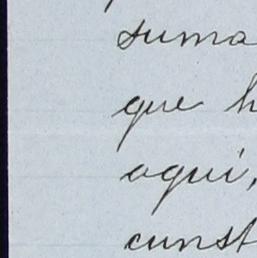 suma
que h
aqui,
cunst